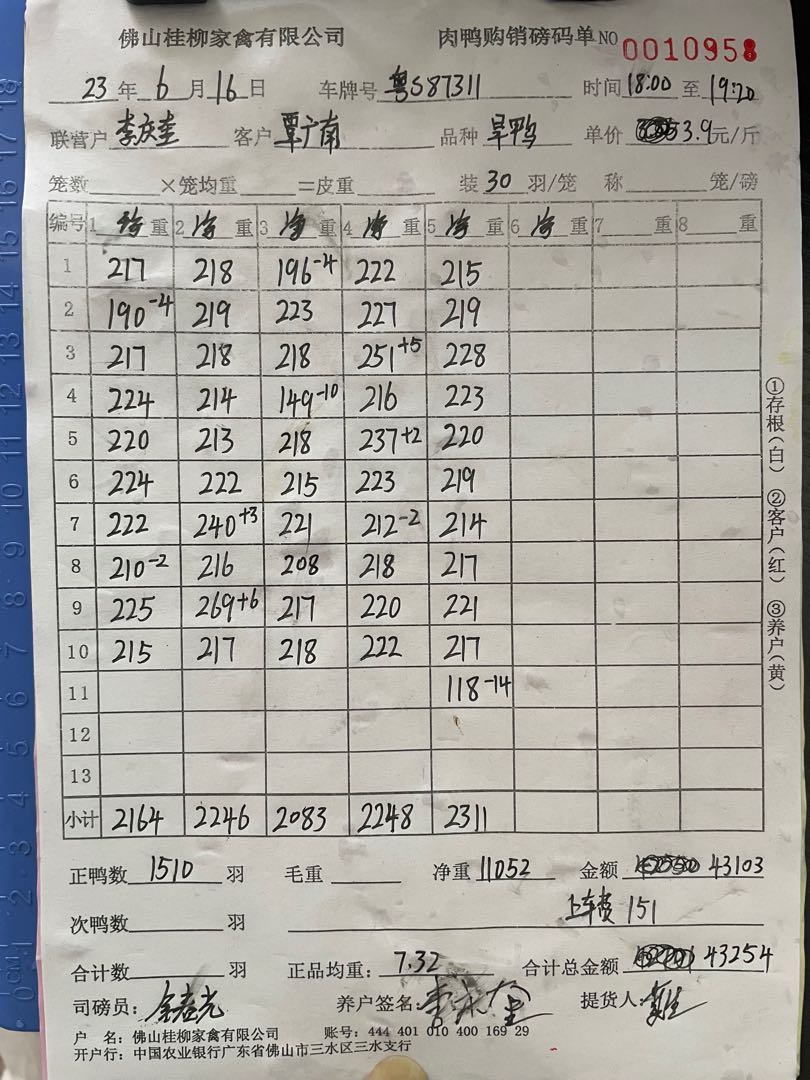 佛山桂柳家禽有限公司 肉鸭购销磅码单 NO 0010958
23年6月16日 车牌号 粤S87311 时间 18:00 至 19:20
联营户 李庆奎 客户 覃广南 品种 旱鸭 单价 3.9元/斤
笼数 ×笼均重 =皮重 装30羽/笼 称 笼/磅
编号 1 净重 2 净重 3 净重 4 净重 5 净重 6 净重 7 重 8 重
1 217 218 196-4 222 215
2 190-4 219 223 227 219
3 217 218 218 251+5 228
4 224 214 149-10 216 223
5 220 213 218 237+2 220
6 224 222 215 223 219
7 222 240+3 221 212-2 214
8 210-2 216 208 218 217
9 225 269+6 217 220 221
10 215 217 218 222 217
11 118-14
12
13
小计 2164 2246 2083 2248 2311
正鸭数 1510 羽 毛重 净重 11052 金额 43103
次鸭数 羽 上车费 151
合计数 羽 正品均重: 7.32 合计总金额 43254
司磅员: 养户签名: 提货人:
户 名: 佛山桂柳家禽有限公司 账号: 444 401 010 400 169 29
开户行: 中国农业银行广东省佛山市三水区三水支行
①存根(白) ②客户(红) ③养户(黄)